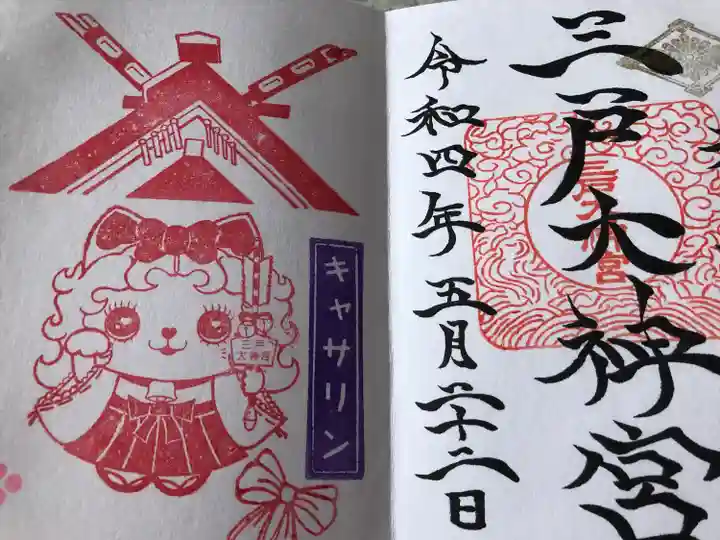 三戸大神宮
令和四年五月二十二日
キャサリン
三戸
大神宮